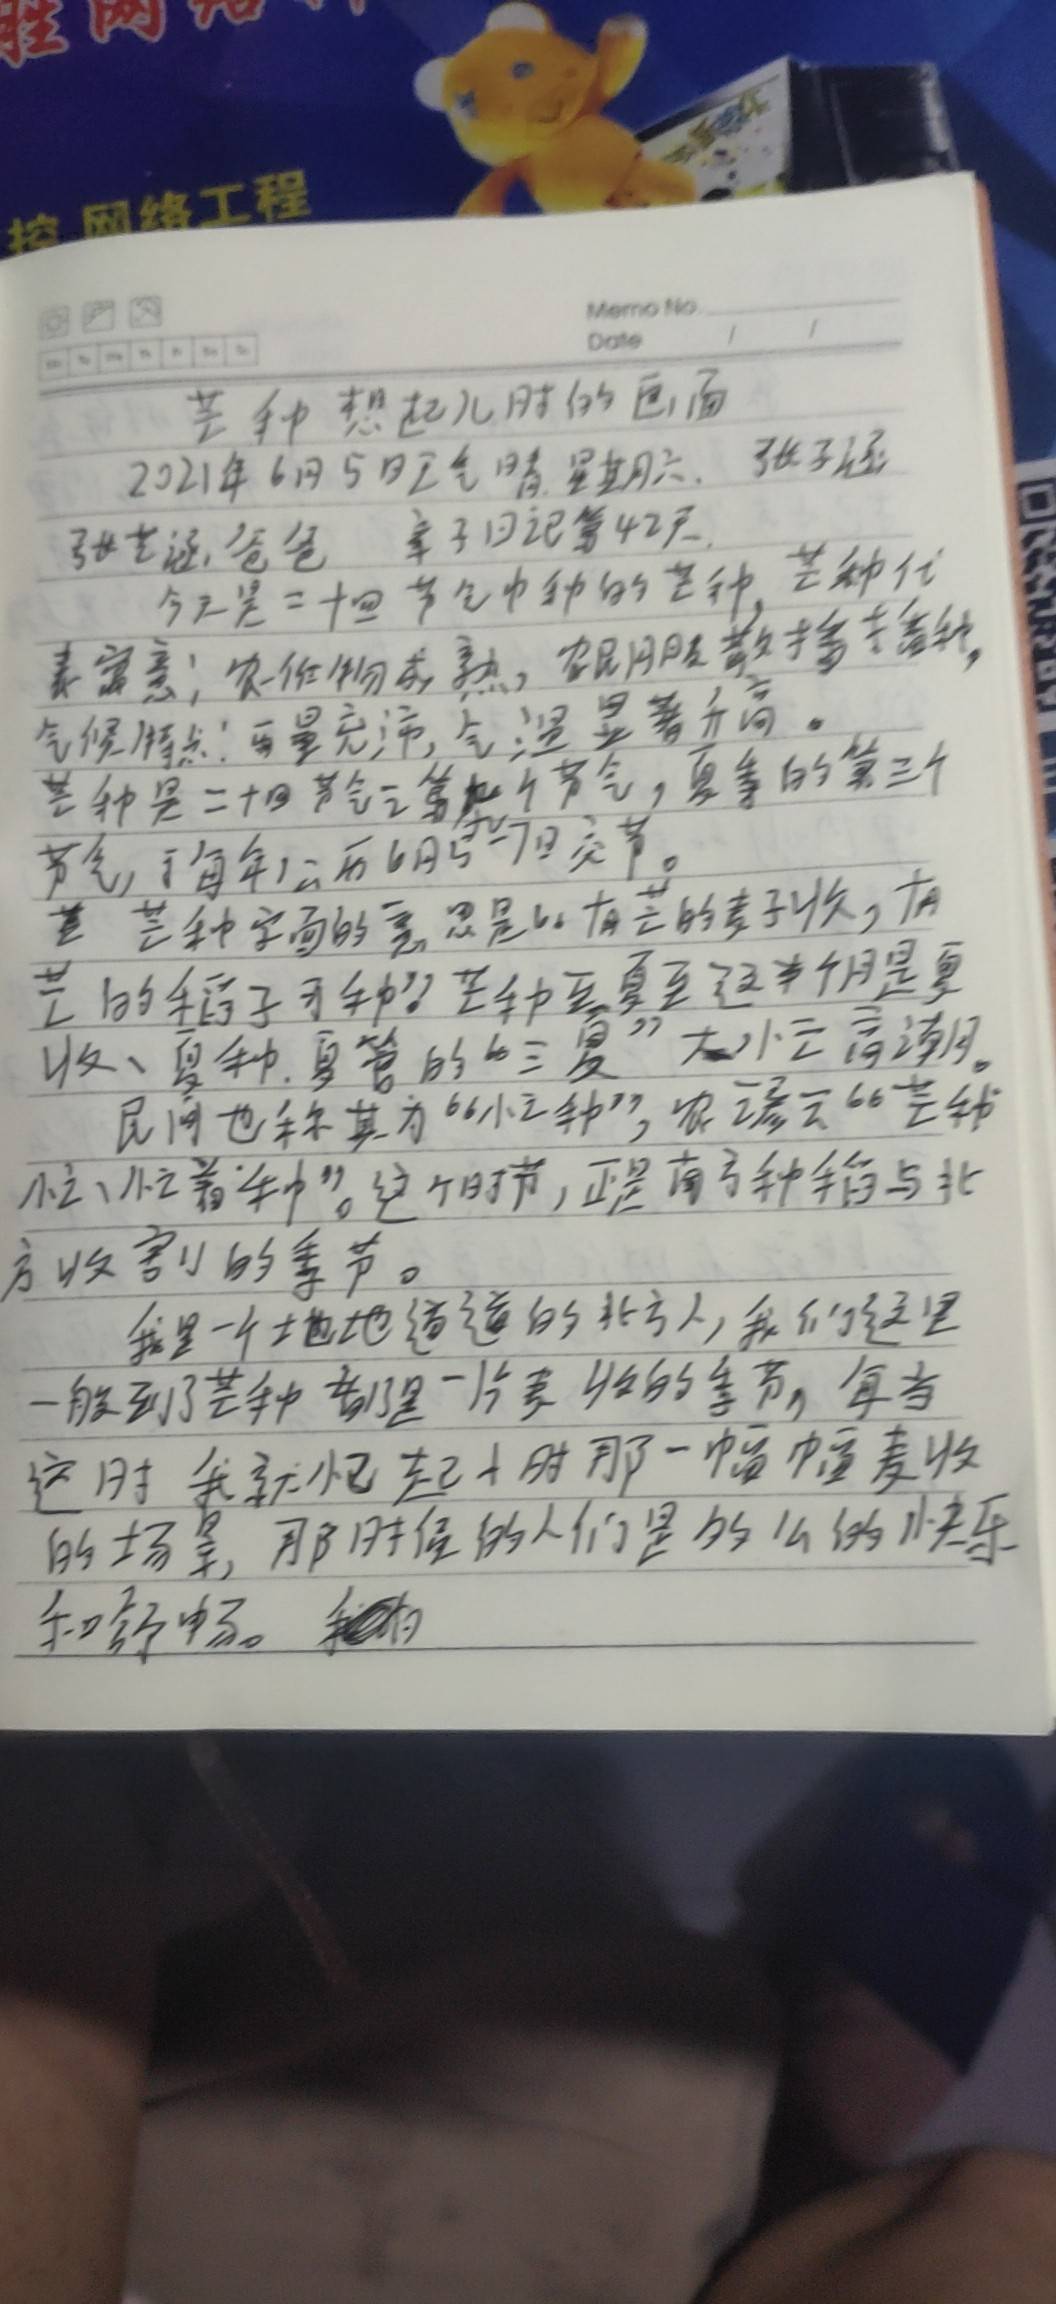 胜网络科
控 网络工程
Memo No.
Date / /
芒种想起儿时的画面
2021年6月5日天气晴.星期六. 张子涵
张艺涵,爸爸 亲子日记第42天.
今天是二十四节气中种的芒种,芒种代
表寓意;农作物成熟,农民 散播去播种,
气候特点:雨量充沛,气温显著升高。
芒种是二十四节气之第九个节气,夏季的第三个
节气,于每年公历6月5-7日交节。
芒种字面的意思是“有芒的麦子收,有
芒的稻子可种”芒种至夏至这半个月是夏
收、夏种.夏管的“三夏”大忙高潮。
民间也称其为“忙种”,农谚云“芒种
忙、忙着种”。这个时节,正是南方种稻与北
方收割的季节。
我是一个土地地道道的北方人,我们这里
一般到了芒种都是一片麦收的季节,每当
这时我就忆起小时那一幅幅麦收
的场景,那时侯的人们是的么的快乐
和舒畅。